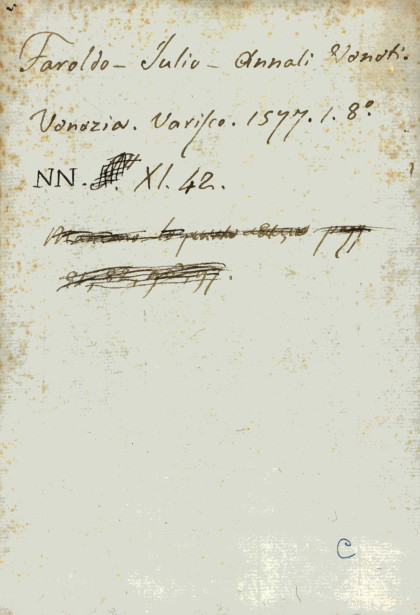 Faroldo – Julio – Annali Veneti.
Venezia. Varisco. 1577. 1. 8.º
NN. XI. 42.
C